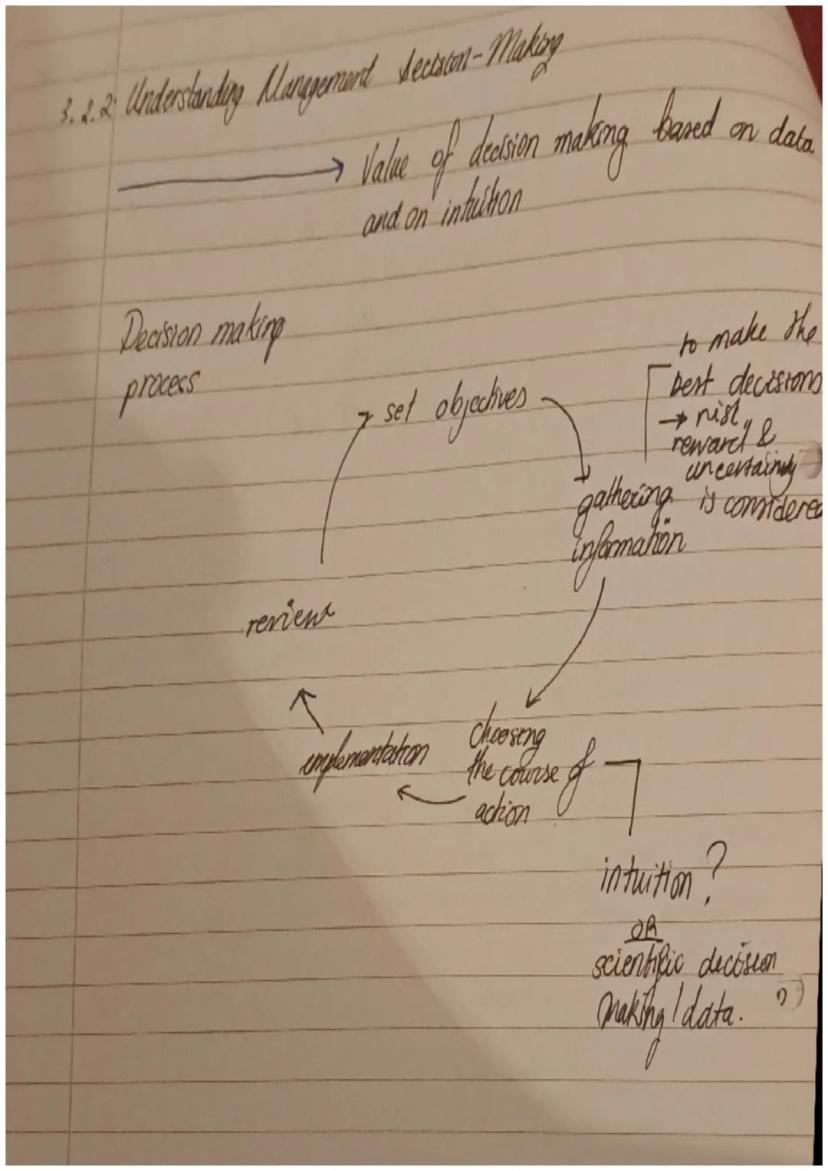 3.2.2 Understanding Management Decision-Making
→ Value of decision making based on data
and on intuition
Decision making
process
→ set objectives
to make the
best decisions
→ risk,
reward &
uncertainty
is considered
gathering
information
choosing
the course of
action
implementation
review
intuition?
OR
scientific decision
making/data.